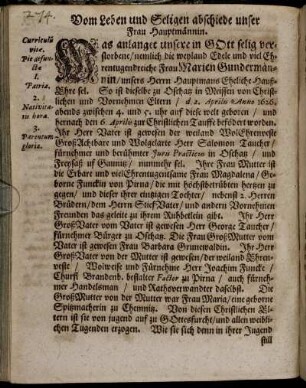 Z-74.
Vom Leben und Seligen abschiede unser
Frau Hauptmännin.
Curriculũ
vitæ.
Pie defunctæ
1.
Patria.
2.
Nativitatis
hora.
3.
Parentum
gloria.
Was anlanget unsere in GOtt selig ver-
storbene/nemlich die weyland Edele und viel Eh-
rentugendreiche Frau Maricn Gundermän-
nin/unsers Herrn Hauptmans Eheliche Hauß-
Ehre sel. So ist dieselbe zu Oschatz in Meissen von Christ-
lichen und Vornehmen Eltern / d. 2. Aprilis Anno 1626.
abends zwischen 4. und 5. uhr auf diese welt gebohren / und
hernach den 6. Aprilis zur Christlichen Tauffe befördert worden.
Ihr Herr Vater ist gewesen der weiland WolEhrenveste
GroßAchtbare und Wolgelarte Herr Salomon Taucher /
fürnehmer und berühmter Juris Practicus in Oschatz / und
Freysaß uf Gaunitz / nunmehr sel. Ihre Frau Mutter ist
die Erbare und vielEhrentugentsame Frau Magdalena / Ge-
borne Funckin von Pirna / die mit höchstbetrübten hertzen zu
gegen / und dieser ihrer einzigen Tochter / nebenst 2. Herren
Brüdern / dem Herrn StiefVater / und andern Vornehmen
Freunden das geleite zu ihrem Ruhbetlein gibt. Ihr Herr
GroßVater vom Vater ist gewesen Herr George Taucher /
fürnehmer Bürger zu Oschatz. Die Frau GroßMutter vom
Vater ist gewesen Frau Barbara Grunewaldin. Ihr Herr
GroßVater von der Mutter ist gewesen / der weiland Ehrn-
veste / Wolweise und Fürnehme Herr Joachim Funcke /
Churfl. Brandenb. bestalter Factor zu Pirna / auch fürneh-
mer Handelsman / und Rathsverwandter daselbst. Die
GroßMutter von der Mutter war Frau Maria / eine geborne
Spitzmacherin zu Chemnitz. Von diesen Christlichen El-
tern ist sie von jugend auf zu GOttesfurcht / und allen weibli-
chen Tugenden erzogen. Wie sie sich denn in ihrer Jugend
still